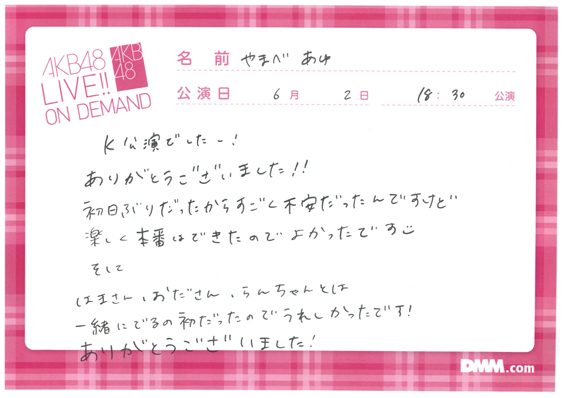 AKB48
LIVE!!
ON DEMAND
AKB
48
名前 やまべ あゆ
公演日 6月 2日 18:30 公演
K公演でしたー!
ありがとうございました!!
初日ぶりだったからすごく不安だったんですけど
楽しく本番はできたのでよかったです
そして
はまさん、おださん、らんちゃんとは
一緒にでるの初だったのでうれしかったです!
ありがとうございました!
DMM.com